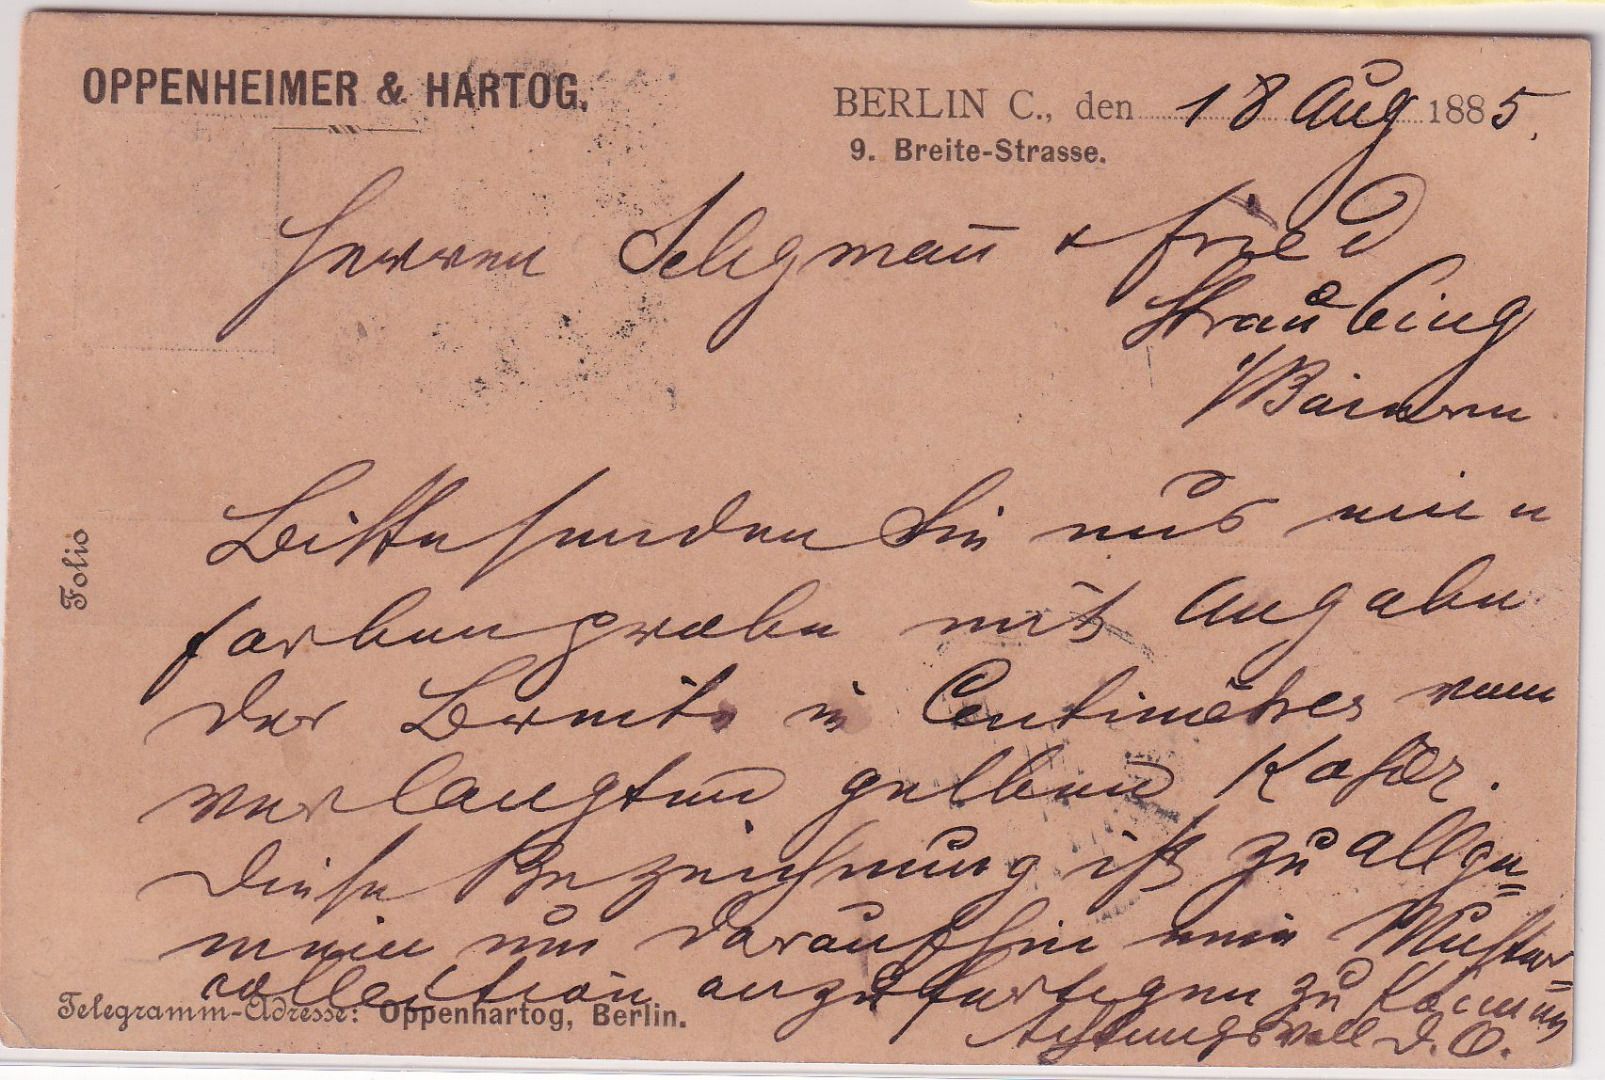 OPPENHEIMER & HARTOG.
BERLIN C., den 18 Aug 1885.
9. Breite-Strasse.
Herren Seligmann & Fried
Straubing
i/Baiern
Folio
Bitte senden Sie uns eine
Farbenprobe mit Angabe
der Breite in Centimètres vom
verlangten gelben
Diese Bezeichnung ist zu allge=
mein um daraufhin eine Muster=
collection anzufertigen zu können
Achtungsvoll d. O.
Telegramm-Adresse: Oppenhartog, Berlin.